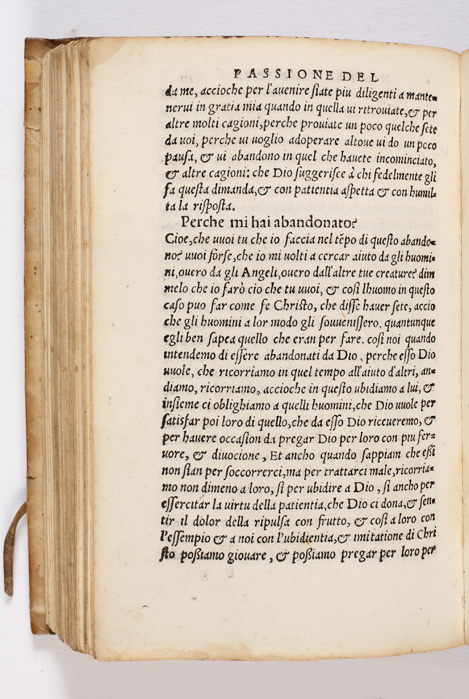 PASSIONE DEL
da me, accioche per l'auenire siate piu diligenti a mante-
nerui in gratia mia quando in quella ui ritrouiate, & per
altre molti cagioni, perche prouiate un poco quel che sete
da uoi, perche ui uoglio adoperare altoue ui do un poco
pausa, & ui abandono in quel che hauete incominciato,
& altre cagioni: che Dio suggerisce à chi fedelmente gli
fa questa dimanda, & con patientia aspetta & con humil-
ta la risposta.
Perche mi hai abandonato?
Cioe, che uuoi tu che io faccia nel tẽpo di questo abando-
no? uuoi forse, che io mi uolti a cercar aiuto da gli huomi-
ni, ouero da gli Angeli, ouero dall'altre tue creature? dim
melo che io farò cio che tu uuoi, & cosi lhuomo in questo
caso puo far come fe Christo, che disse hauer sete, accio
che gli huomini a lor modo gli souuenissero, quantunque
egli ben sapea quello che eran per fare. cosi noi quando
intendemo di essere abandonati da Dio, perche esso Dio
uuole, che ricorriamo in quel tempo all'aiuto d'altri, an-
diamo, ricorriamo, accioche in questo ubidiamo a lui, &
insieme ci oblighiamo a quelli huomini, che Dio uuole per
satisfar poi loro di quello, che da esso Dio riceueremo, &
per hauere occasion da pregar Dio per loro con piu fer-
uore, & diuocione, Et ancho quando sappiam che essi
non sian per soccorrerci, ma per trattarci male, ricorria-
mo non dimeno a loro, si per ubidire a Dio, si ancho per
essercitar la uirtu della patientia, che Dio ci dona, & sen-
tir il dolor della ripulsa con frutto, & cosi a loro con
l'essempio & a noi con l'ubidientia, & imitatione di Chri
sto possiamo giouare, & possiamo pregar per loro per